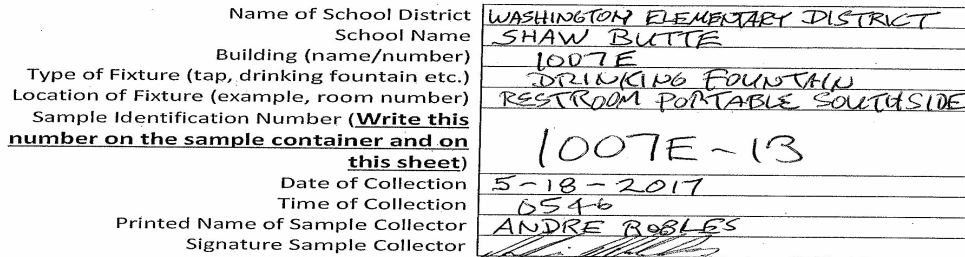 Name of School District WASHINGTON ELEMENTARY DISTRICT
School Name SHAW BUTTE
Building (name/number) 1007E
Type of Fixture (tap, drinking fountain etc.) DRINKING FOUNTAIN
Location of Fixture (example, room number) RESTROOM PORTABLE SOUTHSIDE
Sample Identification Number (Write this
number on the sample container and on
this sheet) 1007E-13
Date of Collection 5-18-2017
Time of Collection 0546
Printed Name of Sample Collector ANDRE ROBLES
Signature Sample Collector